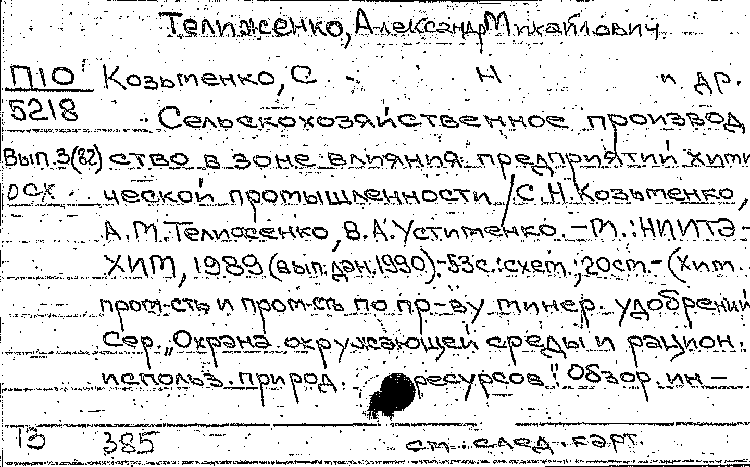 Телиженко, Александр Михайлович
П10 Козьменко, С. Н. и др.
5218 Сельскохозяйственное производ
Вып.3(82) ство в зоне влияния предприятий хими
осх. ческой промышленности / С.Н. Козьменко,
А.М. Телиженко, В.А. Устименко. – М.: НИИТЭ-
ХИМ, 1989 (вып. дан. 1990). – 53 с.: схем.; 20 см. – (Хим.
пром-сть и пром-сть по пр-ву минер. удобрений
Сер. „Охрана окружающей среды и рацион.
использ. природ. ресурсов": Обзор. ин –
385 см. след. карт.